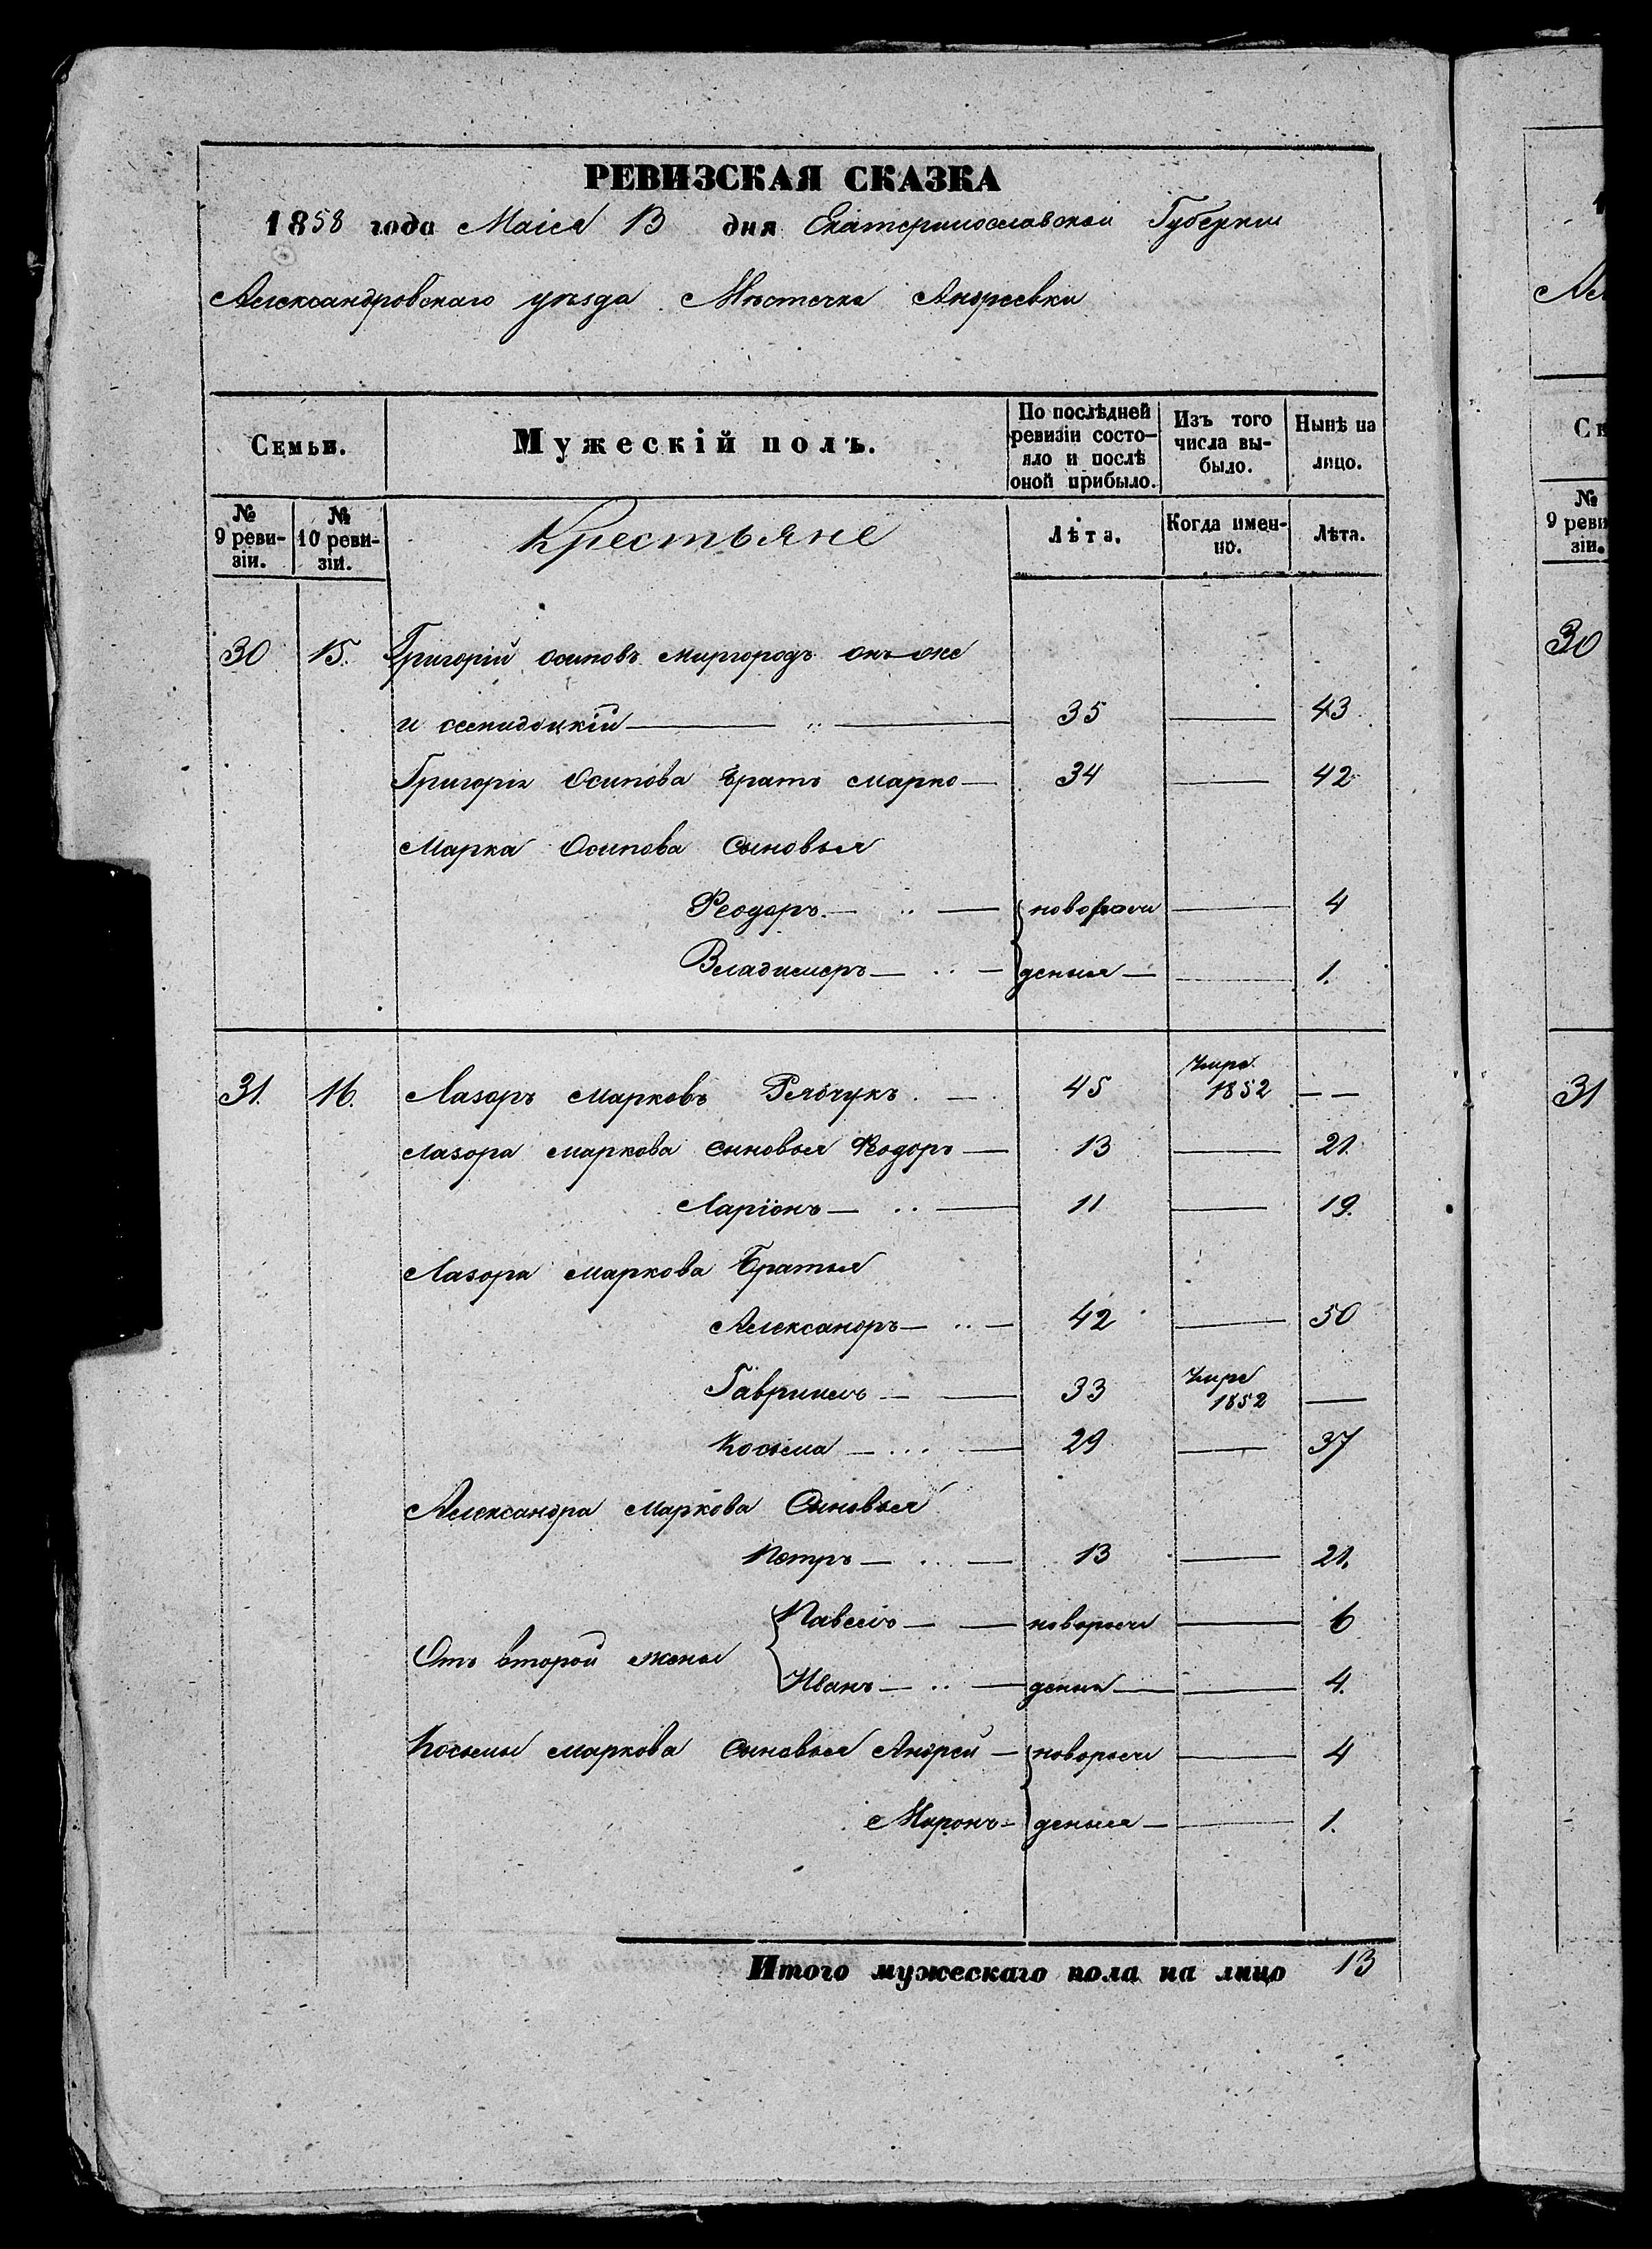 РЕВИЗСКАЯ СКАЗКА
1858 года Маія 13 дня Екатеринославской Губерніи
Александровскаго уѣзда Мѣстечка Андреевки
Семьи.
Мужескій полъ.
По послѣдней ревизіи состо-
яло и послѣ оной прибыло.
Изъ того числа вы-
было.
Нынѣ на лицо.
№ 9 реви-
зіи.
№ 10 реви-
зіи.
Крестьяне
Лѣта.
Когда имен-
но.
Лѣта.
30 15. Григорій Осиповъ Миргородъ онъ же
и 35 — 43.
Григорія Осипова братъ Марко — 34 — 42
Марка Осипова Сыновья
Феодоръ — новорож 4
Владимеръ — денныя — 1.
31. 16. Лазоръ Марковъ Рябчукъ. — 45 умре 1852 — —
Лазора Маркова сыновья Феодоръ — 13 — 21.
Ларіонъ — 11 — 19.
Лазора Маркова Братья
Александръ — 42 — 50
Гавриилъ — 33 умре 1852 —
Косьма — 29 — 37
Александра Маркова Сыновья
Петръ — 13 — 21.
Павелъ — новорож — 6
Отъ второй жены
Иванъ — денны — 4.
Косьмы Маркова Сыновья Андрей — новорож — 4
Миронъ — денныя — 1.
Итого мужескаго пола на лицо 13
Але
Се
№ 9 реви
зіи.
30
31